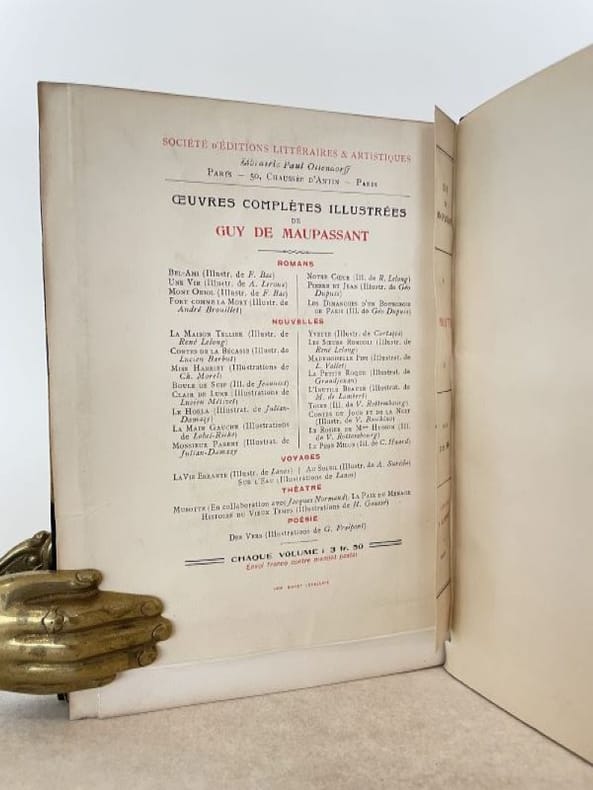 SOCIÉTÉ D'ÉDITIONS LITTÉRAIRES & ARTISTIQUES
Librairie Paul Ollendorff
PARIS — 50, CHAUSSÉE D'ANTIN — PARIS
ŒUVRES COMPLÈTES ILLUSTRÉES
DE
GUY DE MAUPASSANT
ROMANS
BEL-AMI (Illustr. de F. Bac)
UNE VIE (Illustr. de A. Leroux)
MONT ORIOL (Illustr. de F. Bac)
FORT COMME LA MORT (Illustr. de
André Brouillet)
NOTRE CŒUR (Ill. de R. Lelong)
PIERRE ET JEAN (Illustr. de Géo
Dupuis)
LES DIMANCHES D'UN BOURGEOIS
DE PARIS (Ill. de Géo Dupuis)
NOUVELLES
LA MAISON TELLIER (Illustr. de
René Lelong)
CONTES DE LA BÉCASSE (Illustr. de
Lucien Barbut)
MISS HARRIET (Illustrations de
Ch. Morel)
BOULE DE SUIF (Ill. de Jeanniot)
CLAIR DE LUNE (Illustrations de
Lucien Métivet)
LE HORLA (Illustrat. de Julian-
Damazy)
LA MAIN GAUCHE (Illustrations
de Lobel-Riche)
MONSIEUR PARENT (Illustrat. de
Julian-Damazy
YVETTE (Illustr. de Cortazzo)
LES SŒURS RONDOLI (Illustr. de
René Lelong)
MADEMOISELLE FIFI (Illustrat. de
L. Vallet)
LA PETITE ROQUE (Illustr. de
Grandjouan)
L'INUTILE BEAUTÉ (Illustrat. de
M. de Lambert)
TOINE (Ill. de V. Rottembourg)
CONTES DU JOUR ET DE LA NUIT
(Illustr. de V. Rousseau)
LE ROSIER DE Mme HUSSON (Ill.
de V. Rottembourg)
LE PÈRE MILON (Ill. de C. Huard)
VOYAGES
LA VIE ERRANTE (Illustr. de Lanos) | AU SOLEIL (Illustr. de A. Suréda)
SUR L'EAU (Illustrations de Lanos)
THÉATRE
MUSOTTE (En collaboration avec Jacques Normand). LA PAIX DU MÉNAGE
HISTOIRE DU VIEUX TEMPS (Illustrations de H. Goussé)
POÉSIE
DES VERS (Illustrations de G. Fraipont)
CHAQUE VOLUME : 3 fr. 50
Envoi franco contre mandat postal